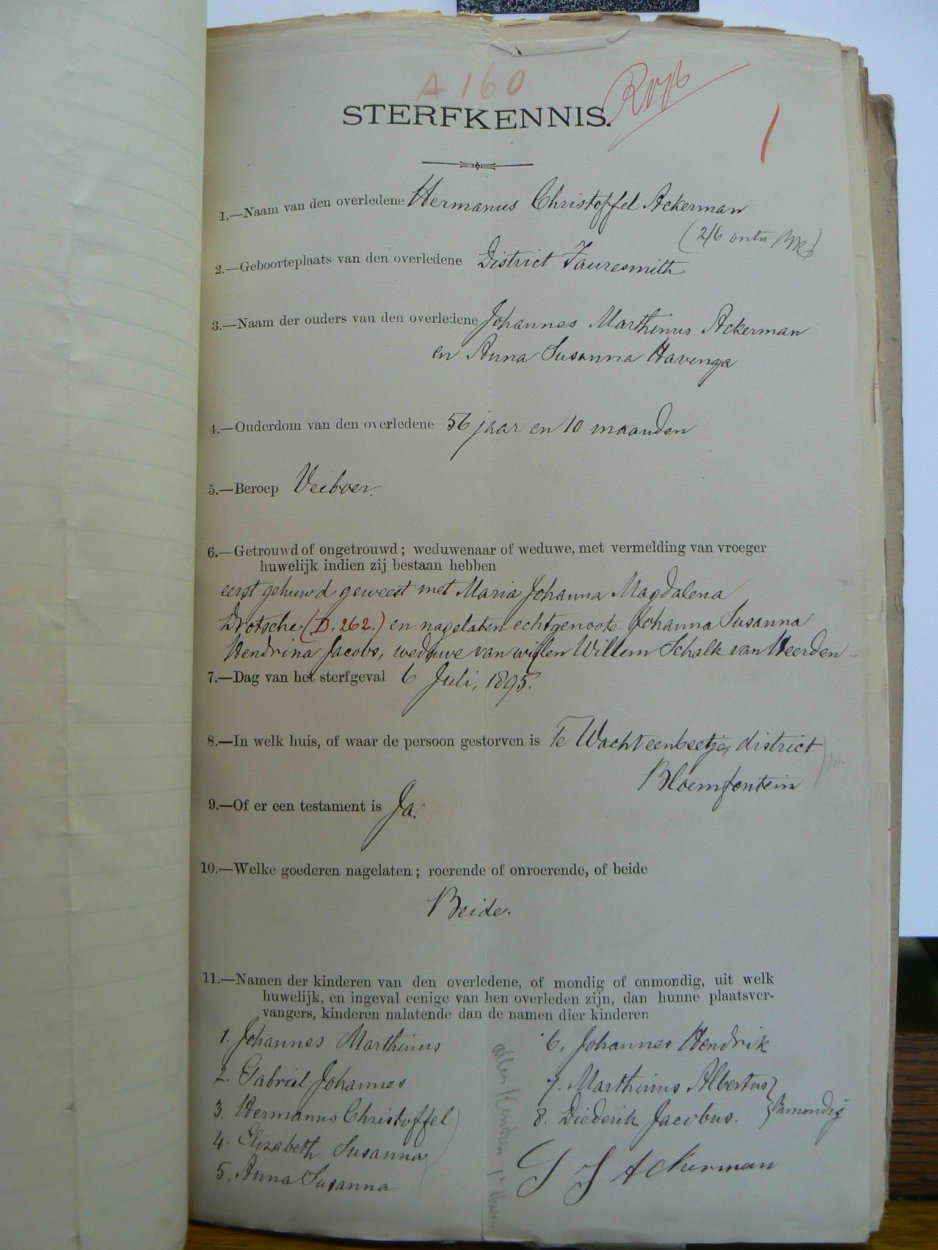 A 160
STERFKENNIS.
1.—Naam van den overledene Hermanus Christoffel Ackerman
2.—Geboorteplaats van den overledene District Fauresmith
3.—Naam der ouders van den overledene Johannes Marthinus Ackerman
en Anna Susanna Havenga
4.—Ouderdom van den overledene 56 jaar en 10 maanden
5.—Beroep Veeboer.
6.—Getrouwd of ongetrouwd; weduwenaar of weduwe, met vermelding van vroeger
huwelijk indien zij bestaan hebben
eerst gehuwd geweest met Maria Johanna Magdalena
Drotsche (D. 262.) en nagelaten echtgenoote Johanna Susanna
Hendrina Jacobs, weduwe van wijlen Willem Schalk van Heerden
7.—Dag van het sterfgeval 6 Juli, 1895.
8.—In welk huis, of waar de persoon gestorven is Te Wachteenbeetje, district
Bloemfontein
9.—Of er een testament is Ja.
10.—Welke goederen nagelaten; roerende of onroerende, of beide
Beide.
11.—Namen der kinderen van den overledene, of mondig of onmondig, uit welk
huwelijk, en ingeval eenige van hen overleden zijn, dan hunne plaatsver-
vangers, kinderen nalatende dan de namen dier kinderen
1. Johannes Marthinus
2. Gabriel Johannes
3. Hermanus Christoffel
4. Elizabeth Susanna
5. Anna Susanna
6. Johannes Hendrik
7. Marthinus Albertus
8. Diederik Jacobus. onmondig
G J Ackerman